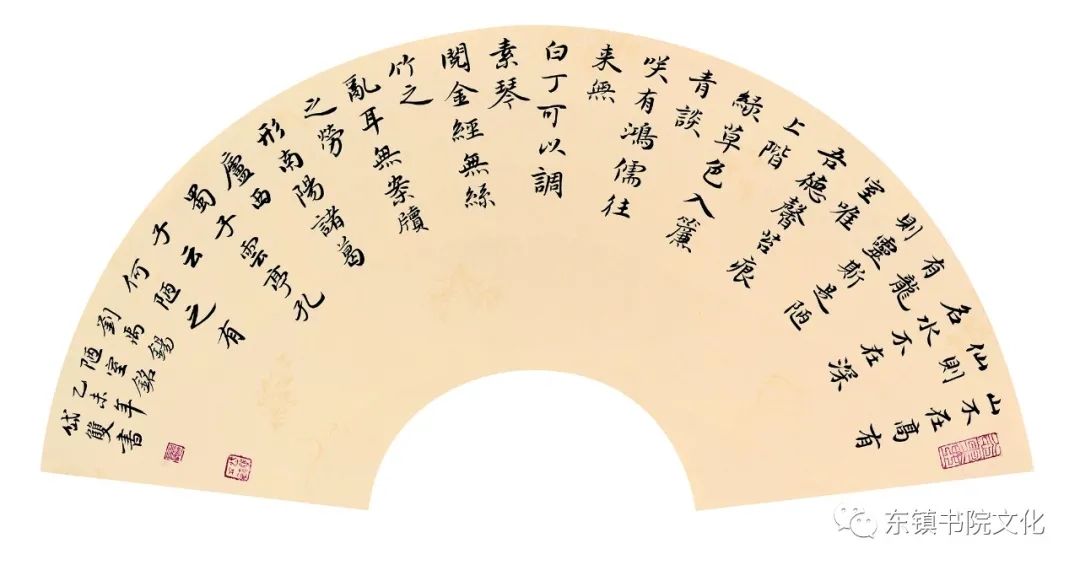 山不在高有
仙則
名水不在深
有龍
則靈斯是陋
室唯
吾德馨苔痕
上階
綠草色入簾
青談
咲有鴻儒往
来無
白丁可以調
素琴
閱金經無絲
竹之
亂耳無案牘
之勞
形南陽諸葛
廬西
蜀子雲亭孔
子云
何陋之有
劉禹錫
陋室銘
乙未年
岱雙書
东镇书院文化